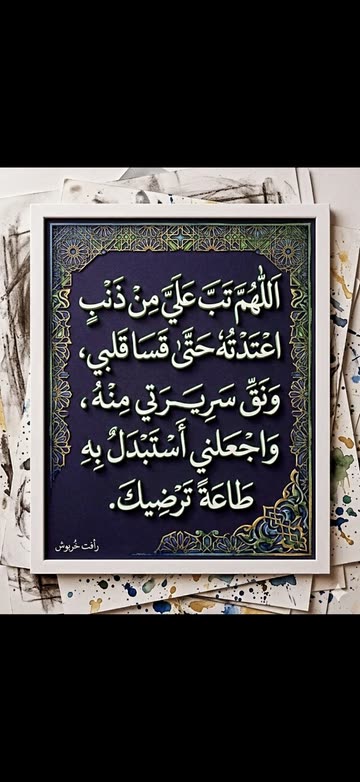 اَللّٰهُمَّ تَبَّ عَلَيَّ مِنْ ذَنْبٍ
اعْتَدْتُهُ حَتَّىٰ قَسَا قَلبي،
وَنَقِّ سَرِيرَتي مِنْهُ،
وَاجْعَلني أَسْتَبْدَلُ بِهِ
طَاعَةً تَرْضِيكَ.
رأفت خُربوش